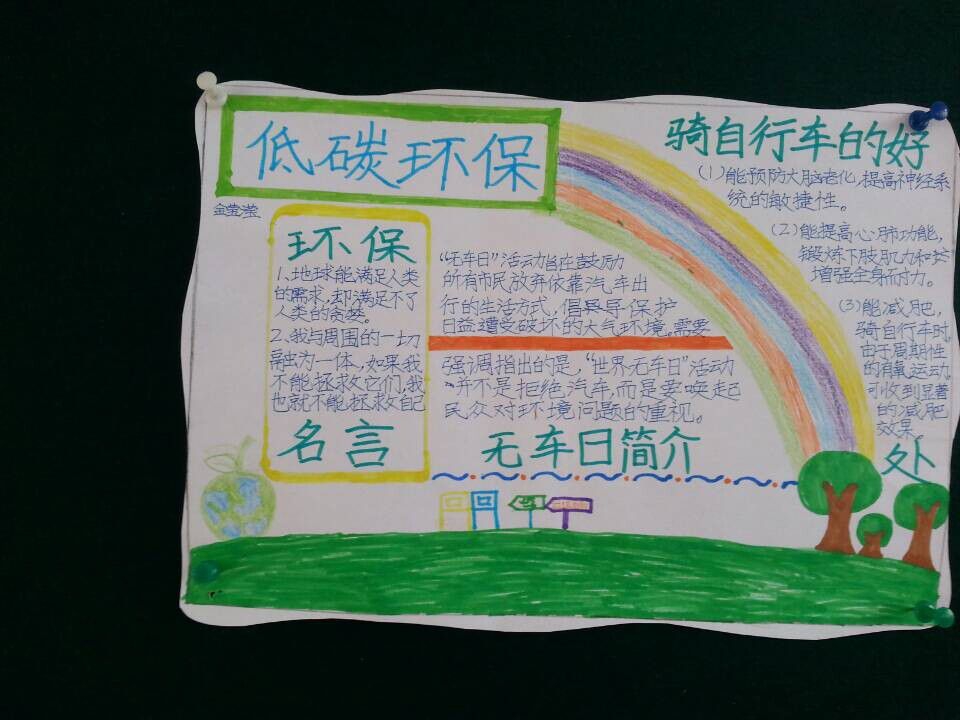 低碳环保
金莹莹
环保
1、地球能满足人类
的需求,却满足不了
人类的贪婪。
2、我与周围的一切
融为一体,如果我
不能拯救它们,我
也就不能拯救自己
名言
“无车日”活动旨在鼓励
所有市民放弃依靠汽车出
行的生活方式,倡导保护
日益遭受破坏的大气环境,需要
强调指出的是,“世界无车日”活动
并不是拒绝汽车,而是要唤起
民众对环境问题的重视。
无车日简介
骑自行车的好
(1)能预防大脑老化,提高神经系
统的敏捷性。
(2)能提高心肺功能,
锻炼下肢肌力和
增强全身耐力。
(3)能减肥,
骑自行车时,
由于周期性
的有氧运动,
可收到显著
的减肥
效果。
处